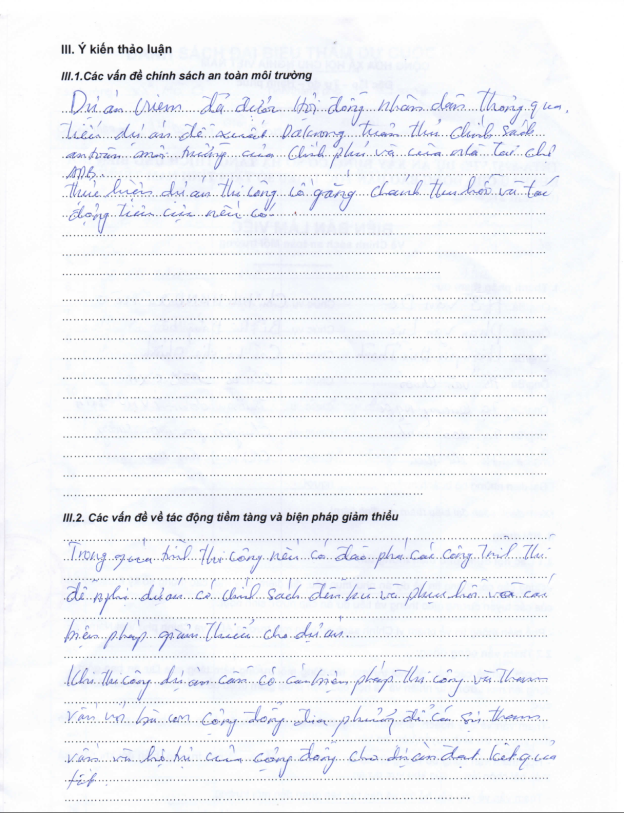 III. Ý kiến thảo luận
III.1.Các vấn đề chính sách an toàn môi trường
Dự án đã được Hội đồng nhân dân thông qua,
tiểu dự án đề xuất tuân thủ chính sách
an toàn môi trường của chính phủ và của nhà tài chợ
ADB.
thực hiện dự án thi công cố gắng chánh thu hồi và tác
động tiêu cực nếu có.
III.2. Các vấn đề về tác động tiềm tàng và biện pháp giảm thiểu
Trong quá trình thi công nếu có đào phá các công trình thì
đề nghị dự án có chính sách đền bù và phục hồi và các
biện pháp giảm thiểu cho dự án.
Khi thi công dự án cần có các biện pháp thi công và tham
vấn với bà con cộng đồng địa phương để có sự tham
vấn và hỗ trợ của cộng đồng cho dự án đạt kết quả
tốt.